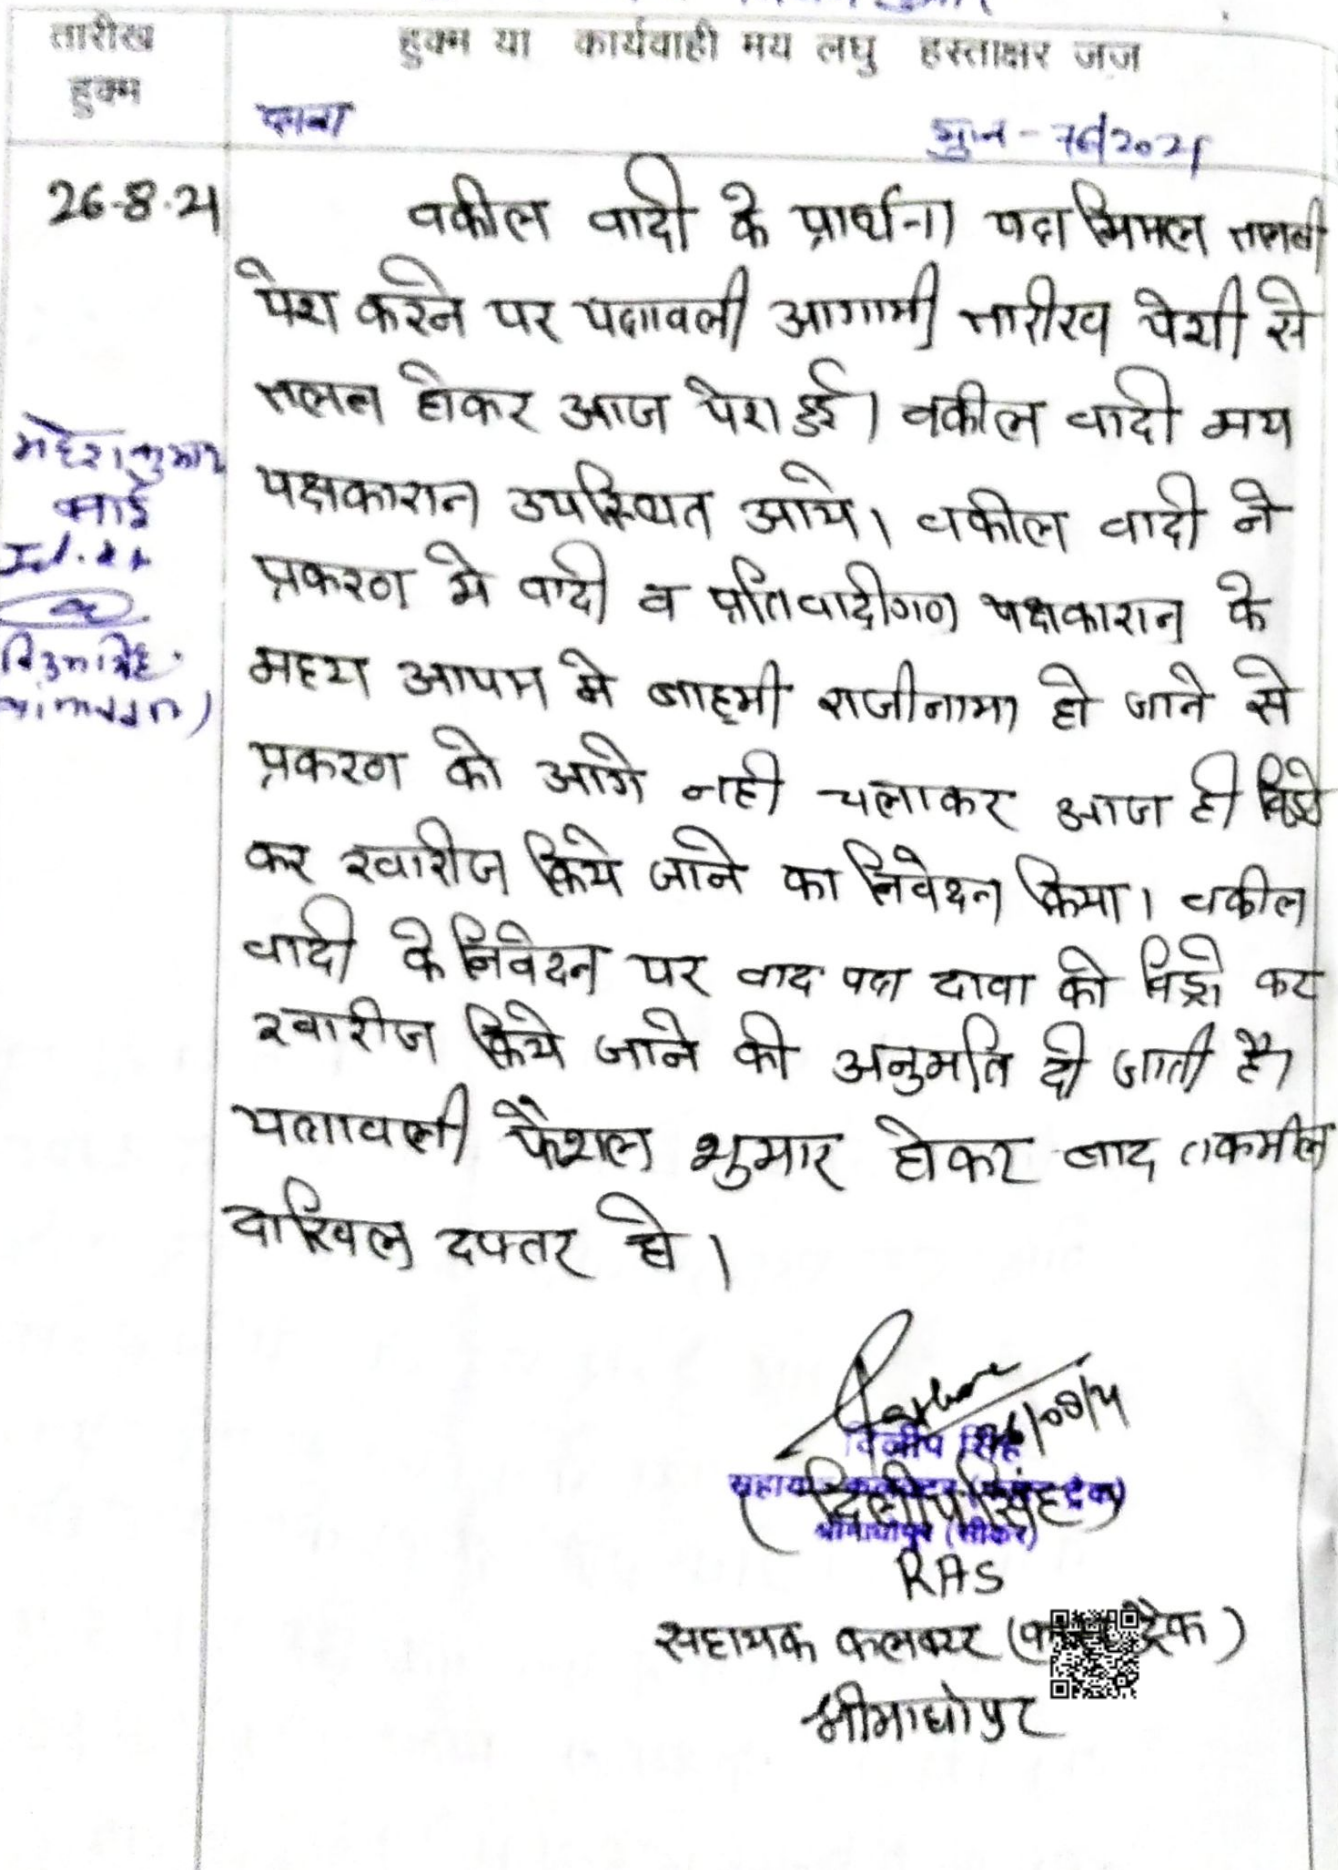 तारीख हुक्म
हुक्म या कार्यवाही मय लघु हस्ताक्षर जज
26-8-21
वकील वादी के प्रार्थना पत्र मिसल तलबी
पेश करने पर पत्रावली आगामी तारीख पेशी से
तलब होकर आज पेश हुई। वकील वादी मय
पक्षकारान उपस्थित आये। वकील वादी ने
प्रकरण मे वादी व प्रतिवादीगण पक्षकारान के
मध्य आपस मे बाहमी राजीनामा हो जाने से
प्रकरण को आगे नही चलाकर आज ही विड्रो
कर खारीज किये जाने का निवेदन किया। वकील
वादी के निवेदन पर वाद पत्र दावा को विड्रो कर
खारीज किये जाने की अनुमति दी जाती है।
पत्रावली फैशल शुमार होकर बाद तकमील
दाखिल दफ्तर हो।
महेश कुमार
26/08/21
दिलीप सिंह
(दिलीप सिंह)
श्रीमाधोपुर (सीकर)
RAS
सहायक कलक्टर (ट्रेक)
श्रीमाधोपुर